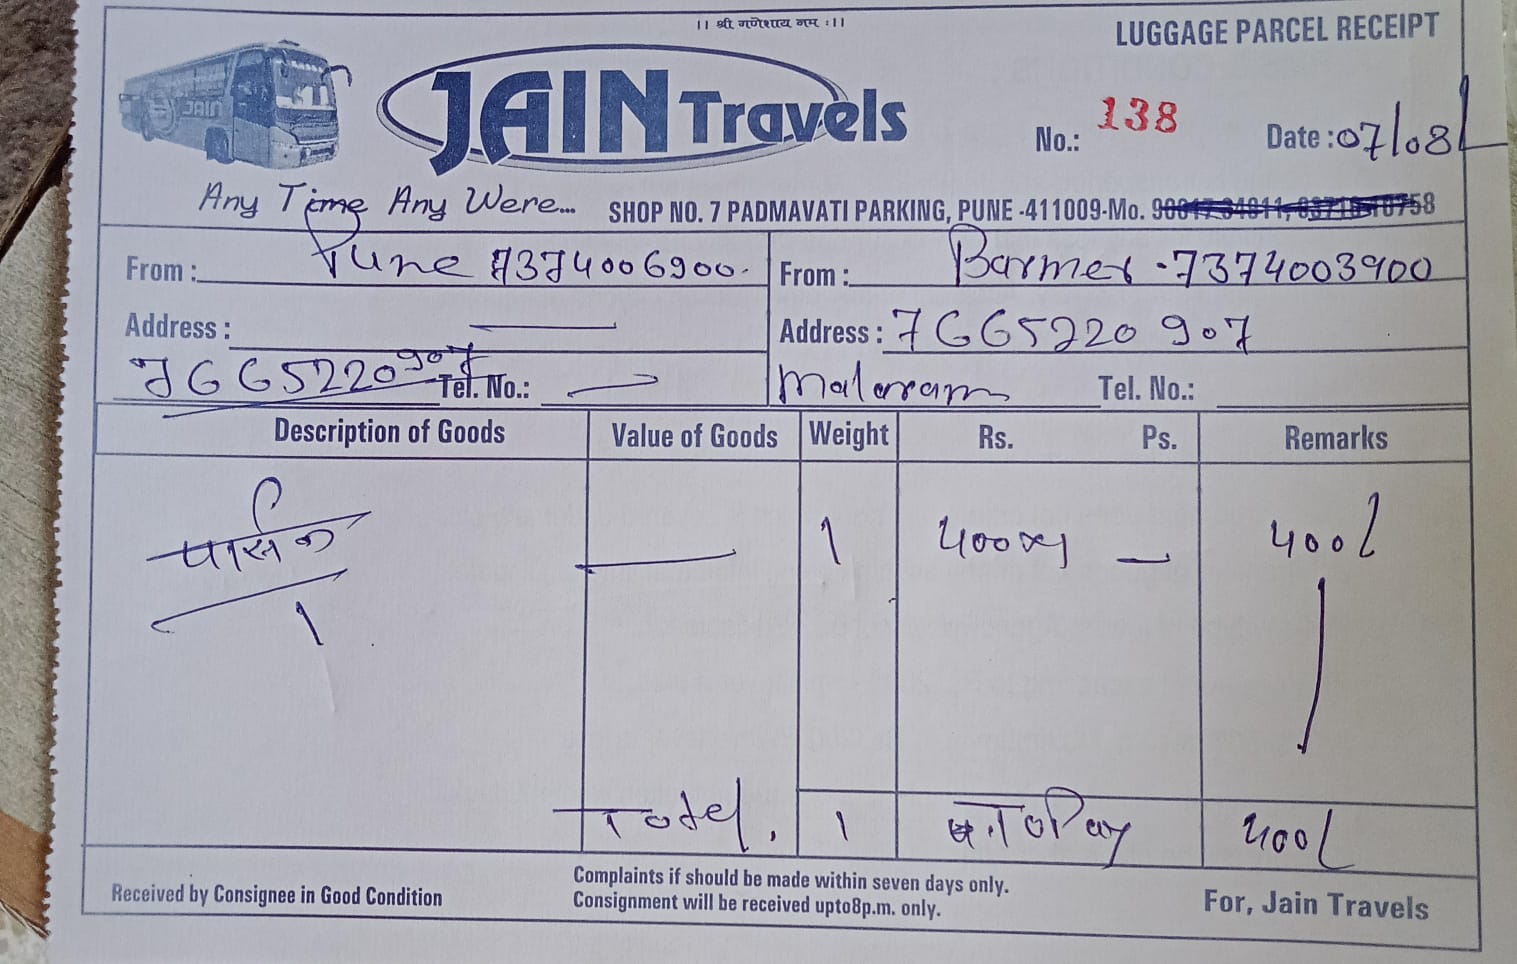 ।। श्री गणेशाय नमः ।।
LUGGAGE PARCEL RECEIPT
JAIN
JAIN Travels
No.: 138
Date : 07/08/
Any Time Any Were...
SHOP NO. 7 PADMAVATI PARKING, PUNE -411009-Mo.
From : Pune 7374006900.
From : Barmer - 7374003900
Address :
Address : 7665220907
7665220907 Tel. No.:
Malaram Tel. No.:
Description of Goods Value of Goods Weight Rs. Ps. Remarks
1 400x1 — 400/
1
Total. 1 To Pay 400/
Received by Consignee in Good Condition
Complaints if should be made within seven days only.
Consignment will be received upto8p.m. only.
For, Jain Travels